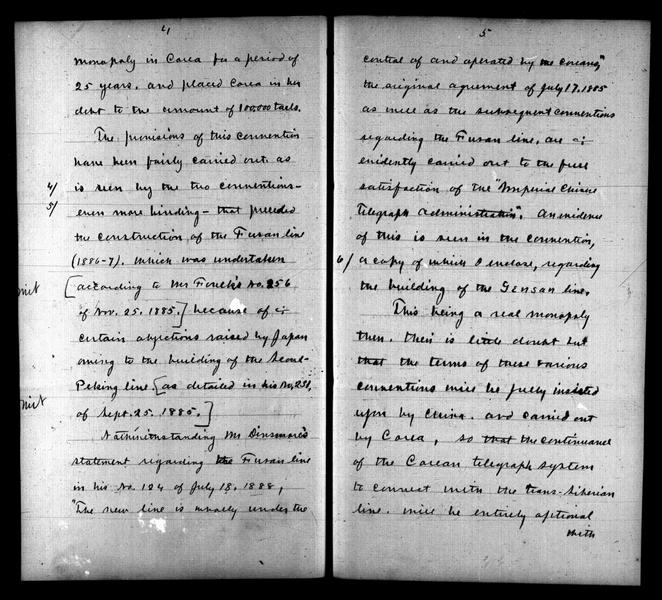 4
monopoly in Corea for a period of
25 years. and placed Corea in her
debt to the amount of 100.000 taels.
The provisions of this convention
have been fairly carried out. as
4/ is seen by the two conventions-
5/ even more binding - that preceded
the construction of the Fusan line
(1886-7). which was undertaken
[according to Mr Foulk's No. 256
of Nov. 25. 1885.] because of
certain objections raised by Japan
oming to the building of the Seoul-
Peking line [as detailed in his No. 231,
of Sept. 25. 1885.]
Nothwithstanding Mr Dinsmore's
statement regarding the Fusan line
in his No. 124 of July 18. 1888,
"The new line is wholly under the
5
control of and operated by the Coreans,"
the original agreement of July 17. 1885
as well as the subsequent conventions
regarding the Fusan line. are
evidently carried out to the full
satisfaction of the "Imperial Chinese
Telegraph administration". An evidence
of this is seen in the convention,
6/ a copy of which I enclose, regarding
the building of the Gensan line.
This being a real monopoly
then. there is little doubt but
that the terms of these various
conventions will be fully insisted
upon by China. and carried out
by Corea, so that the continuance
of the Corean telegraph system
to connect with the trans-Siberian
line. will be entirely optional
with